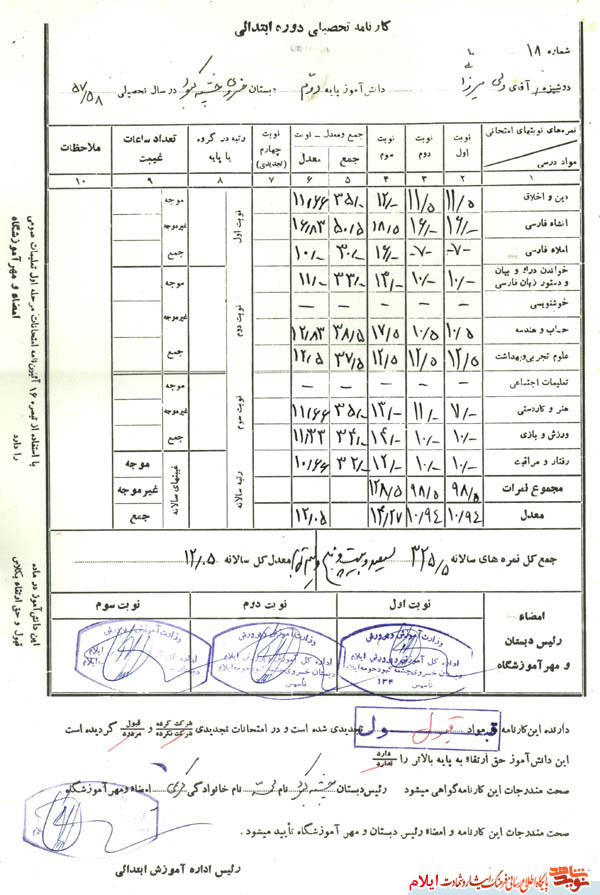 کارنامه تحصیلی دوره ابتدائی
شماره ۱۸
دوشیزه/آقای ولی میرزائی دانش‌آموز پایه دوم دبستان خسروی چشمه کبود در سال تحصیلی ۵۷/۵۸
نمره‌های نوبتهای امتحانی نوبت اول نوبت دوم نوبت سوم جمع ومعدل ـ نوبت نوبت چهارم (تجدیدی) رتبه در گروه یا پایه تعداد ساعات غیبت ملاحظات
مواد درسی جمع معدل
۱ ۲ ۳ ۴ ۵ ۶ ۷ ۸ ۹ ۱۰
دین و اخلاق ۱۱/۵ ۱۱/۵ ۱۲/- ۳۵/- ۱۱/۶۶ نوبت اول موجه
انشاء فارسی ۱۶/- ۱۶/- ۱۸/۵ ۵۰/۵ ۱۶/۸۳ غیرموجه
املاء فارسی -۷- -۷- ۱۶/- ۳۰/- ۱۰/- جمع
خواندن درک و بیان و دستور زبان فارسی ۱۰/- ۱۰/- ۱۳/- ۳۳/- ۱۱/- نوبت دوم موجه
خوشنویسی - - - - - غیرموجه
حساب و هندسه ۱۰/۵ ۱۰/۵ ۱۷/۵ ۳۸/۵ ۱۲/۸۳
علوم تجربی‌وبهداشت ۱۲/۵ ۱۲/۵ ۱۲/۵ ۳۷/۵ ۱۲/۵ جمع
تعلیمات اجتماعی - - - - - نوبت سوم موجه
هنر و کاردستی ۷/- ۱۱/- ۱۳/- ۳۵/- ۱۱/۶۶ غیرموجه
ورزش و بازی ۱۰/- ۱۰/- ۱۴/- ۳۴/- ۱۱/۳۳ جمع
رفتار و مراقبت ۱۰/- ۱۰/- ۱۲/- ۳۲/- ۱۰/۶۶ رتبه سالانه غیبتهای سالانه موجه
مجموع نمرات ۹۸/۵ ۹۸/۵ ۱۲۸/۵ غیرموجه
معدل ۱۰/۹۴ ۱۰/۹۴ ۱۴/۲۷ ۱۲/۰۵ جمع
جمع کل نمره های سالانه ۳۲۵/۵ سیصد و بیست و پنج و نیم معدل کل سالانه ۱۲/۰۵
امضاء رئیس دبستان و مهر آموزشگاه نوبت اول نوبت دوم نوبت سوم
وزارت آموزش و پرورش
اداره کل آموزش و پرورش ایلام
دبستان خسروی چشمه کبود حومه ایلام
تأسیس ۱۳۴
وزارت آموزش و پرورش
اداره کل آموزش و پرورش ایلام
دبستان خسروی چشمه کبود حومه ایلام
تأسیس
وزارت آموزش و پرورش
ایلام
دارنده این کارنامه قبول در مواد قبول تجدیدی شده است و در امتحانات تجدیدی شرکت کرده شرکت نکرده و قبول مردود گردیده است
این دانش‌آموز حق ارتقاء به پایه بالاتر را دارد ندارد
صحت مندرجات این کارنامه گواهی میشود رئیس دبستان چشمه کبود نام نام خانوادگی کرمی امضاء ومهر آموزشگاه
صحت مندرجات این کارنامه و امضاء رئیس دبستان و مهر آموزشگاه تأیید میشود.
رئیس اداره آموزش ابتدائی
با استفاده از تبصره ۱۶ آئین‌نامه امتحانات مرحله اول تعلیمات عمومی
امضاء و مهر آموزشگاه
این دانش‌آموز در ماده را دارد
قبول و حق ارتقاء بکلاس
نوید شاهد
پایگاه اطلاع رسانی فرهنگ ایثار و شهادت ایلام